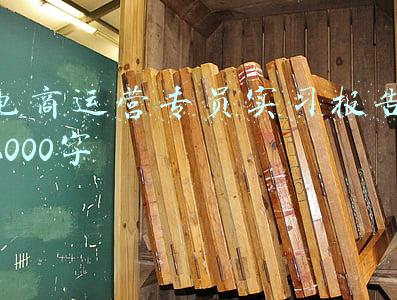 电商运营专员实习报告
000字